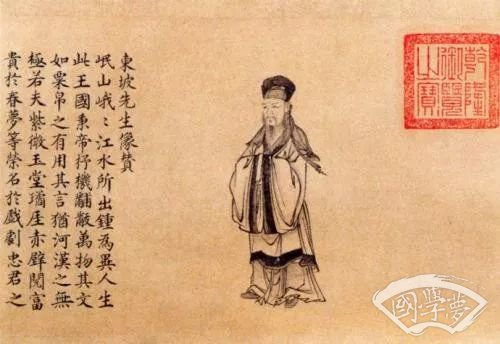 東坡先生像贊
岷山峨〻江水所出鍾為異人生
此王國秉帝杼機黼黻萬物其文
如粟帛之有用其言猶河漢之無
極若夫紫微玉堂瓊厓赤壁閱富
貴於春夢等榮名於戲劇忠君之
乾隆
御覽
之寶
國學夢